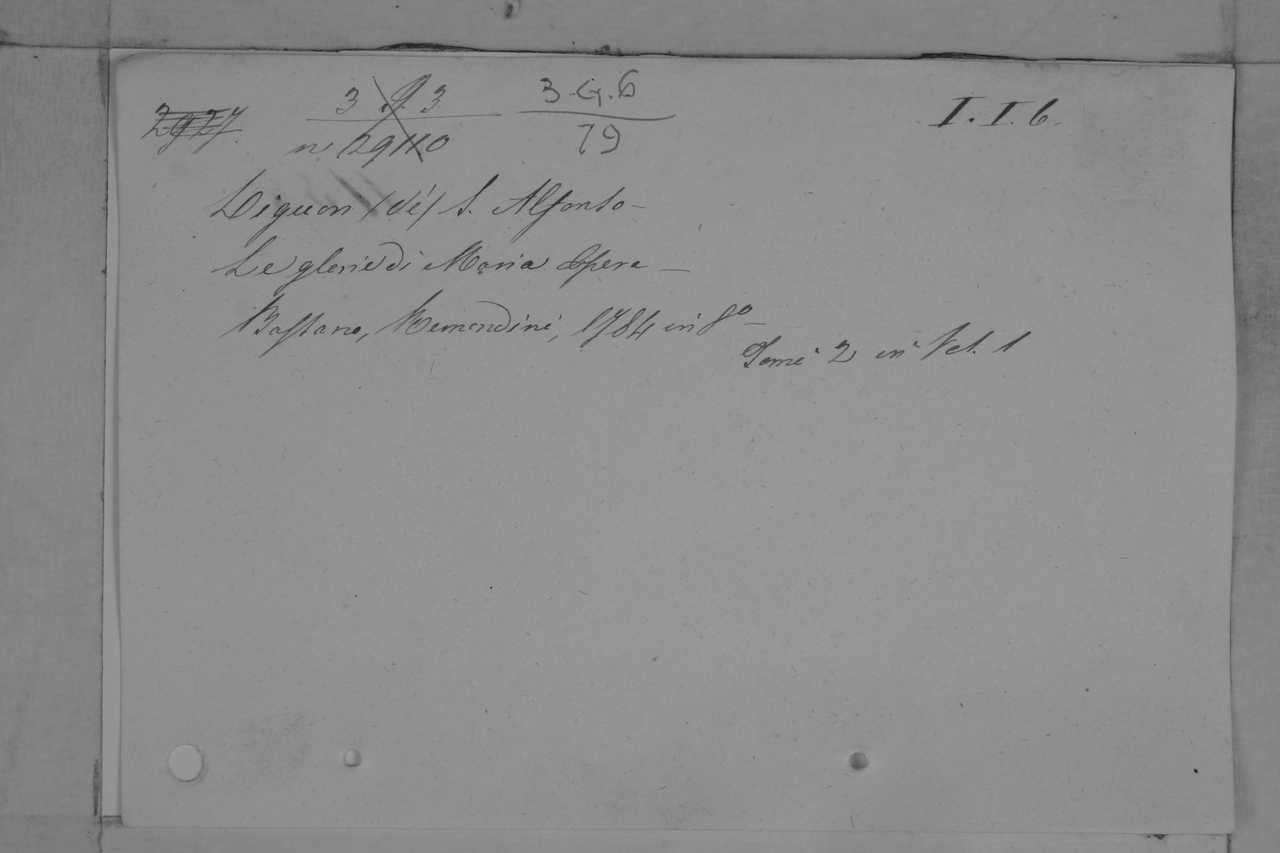 2927. 3 . 9. 3 3.G.6 I.I.6.
n. 29110 79
Liguori (de') S. Alfonso -
Le glorie di Maria Opera -
Bassano, Remondini, 1784 in 8º -
Tomi 2 in Vol. 1